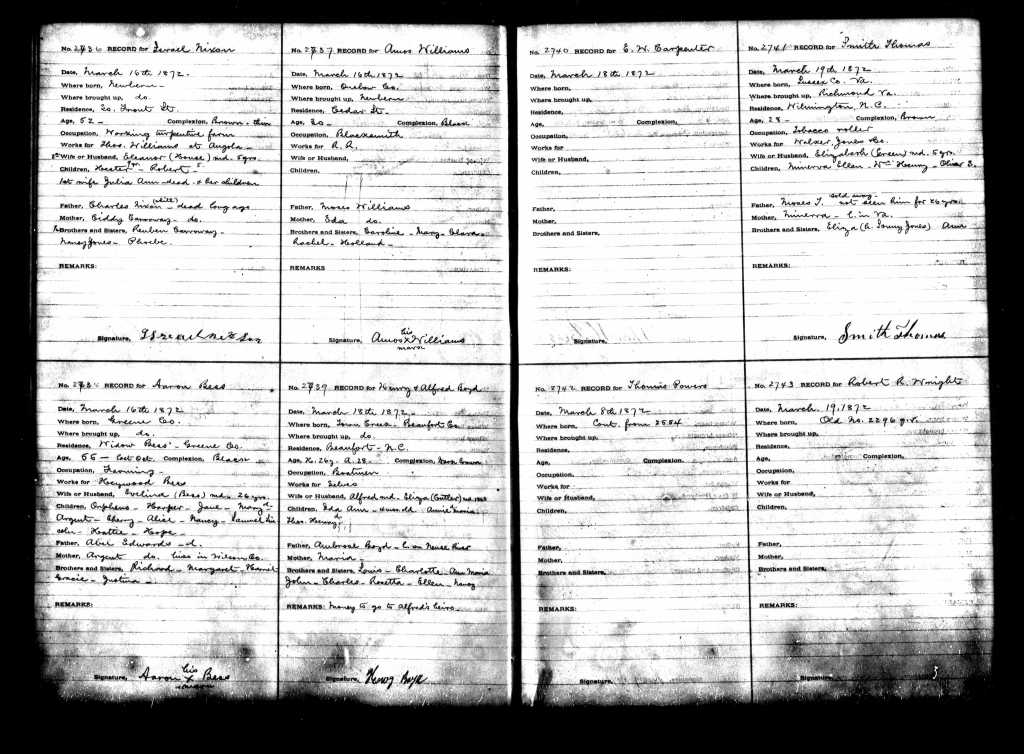 No. 2736 RECORD for Israel Nixon
Date, March 16th 1872.
Where born, Newbern
Where brought up, do
Residence, 20. Front St.
Age, 52 - Complexion, Brown - thin
Occupation, Working turpentine farm
Works for Thos. Williams at Angola
Wife or Husband, Eleanor (House) md. 5 yrs.
Children, Hester - Robert
1st wife Julia Ann - dead & her children
Father, Charles Nixon - dead long ago
Mother, Biddy Carroway - do.
Brothers and Sisters, Reuben Carroway -
Nancy Jones - Phoebe.
REMARKS:
Signature,
No. 2737 RECORD for Amos Williams
Date, March 16th 1872
Where born, Onslow Co.
Where brought up, Newbern
Residence, Cedar St.
Age, 20 - Complexion, Black
Occupation, Blacksmith
Works for R. R.
Wife or Husband,
Children,
Father, Moses Williams
Mother, Eda do.
Brothers and Sisters, Caroline - Mary - Clara -
Rachel - Holland -
REMARKS
his
Signature, Amos x Williams
mark
No. 2738 RECORD for Aaron Bess
Date, March 16th 1872
Where born, Greene Co.
Where brought up, do
Residence, Widow Bess' - Greene Co.
Age, 55 - Complexion, Black
Occupation, Farming -
Works for Heywood Bess
Wife or Husband, Evelina (Bess) md. 26 yrs.
Children, Orpheus - Harper - Jane - Mary
Argent - Cherry - Alice - Nancy - Samuel Lin
coln - Hattie - Hope -
Father, Abel Edwards - d.
Mother, Argent do. lives in Wilson Co.
Brothers and Sisters, Richard - Margaret - Harriet
Gracie - Justina -
REMARKS:
his
Signature, Aaron x Bess
mark
No. 2739 RECORD for Henry & Alfred Boyd
Date, March 18th 1872
Where born, Creek - Beaufort Co
Where brought up, do.
Residence, Beaufort - N.C.
Age, H. 26 y. A. 28. Complexion, brown
Occupation, Boatmen
Works for Selves
Wife or Husband, Alfred md. Eliza (Cutler)
Children, Ida Ann - Annie Maria
Thos. Henry
Father, Ambrose Boyd - l. on Neuse River
Mother, Maria
Brothers and Sisters, Louis - Charlotte - Ann Maria
John - Charles - Rosetta - Ellen - Nancy
REMARKS: Money to go to Alfred's heirs -
Signature, Henry Boyd
No. 2740 RECORD for E. W. Carpenter
Date, March 18th 1872
Where born,
Where brought up,
Residence,
Age, Complexion,
Occupation,
Works for
Wife or Husband,
Children,
Father,
Mother,
Brothers and Sisters,
REMARKS:
Signature,
No. 2741 RECORD for Smith Thomas
Date, March 19th 1872
Where born, Sussex Co. Va.
Where brought up, Richmond Va.
Residence, Wilmington, N.C.
Age, 28 - Complexion, Brown
Occupation, Tobacco roller
Works for Jones & Co.
Wife or Husband, Elizabeth (Green) md. 5 yrs.
Children, Minerva Ellen - Wm Henry - Oliver
sold away
Father, Moses T. not seen him for 26 yrs.
Mother, Minerva - l. in Va.
Brothers and Sisters, Eliza Jones) Ann
REMARKS:
Signature, Smith Thomas
No. 2742 RECORD for Thomas Powers
Date, March 8th 1872
Where born, Cont. from 2584
Where brought up,
Residence,
Age, Complexion,
Occupation,
Works for
Wife or Husband,
Children,
Father,
Mother,
Brothers and Sisters,
REMARKS:
Signature,
No. 2743 RECORD for Robert R. Wright
Date, March. 19, 1872
Where born, Old No. 2296 q.v.
Where brought up,
Residence,
Age, Complexion,
Occupation,
Works for
Wife or Husband,
Children,
Father,
Mother,
Brothers and Sisters,
REMARKS:
Signature,